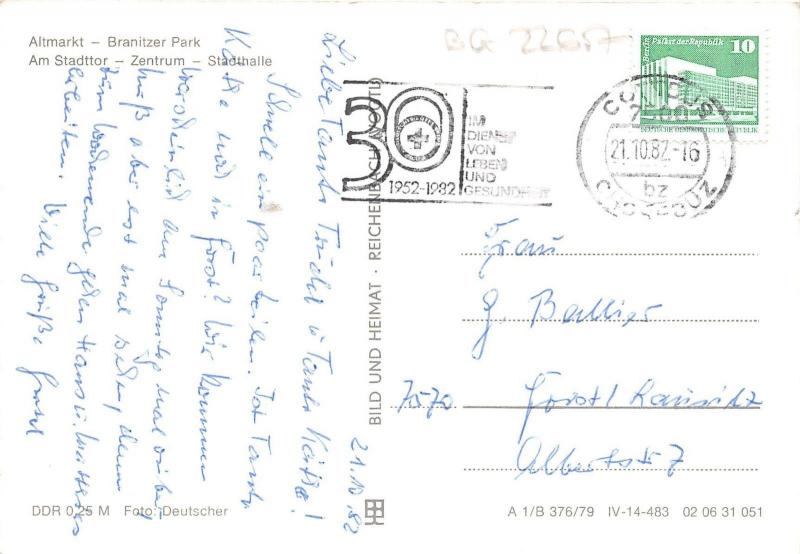 Altmarkt – Branitzer Park
Am Stadttor – Zentrum – Stadthalle
BG 22617
Berlin, Palast der Republik 10
DEUTSCHE DEMOKRATISCHE REPUBLIK
COTTBUS
21.10.82-16
bz
CHOŚEBUZ
30
1952-1982
IM
DIENST
VON
LEBEN
UND
GESUNDHEIT
21.10.82
Liebe Tante Trudel u Tante Käthe!
Schnell ein paar Zeilen. Ist Tante
Käthe noch in Forst? Wir kommen
wahrscheinlich am Sonntag mal vorbei,
muß aber erst mal sehen, denn
zum Wochenende gehen Hans u.
arbeiten. Viele Grüße
Frau
G. Balkier
7570 Forst/Lausitz
Albertstr 7
BILD UND HEIMAT · REICHENBACH (VOGTL)
DDR 0,25 M Foto: Deutscher
A 1/B 376/79 IV-14-483 02 06 31 051